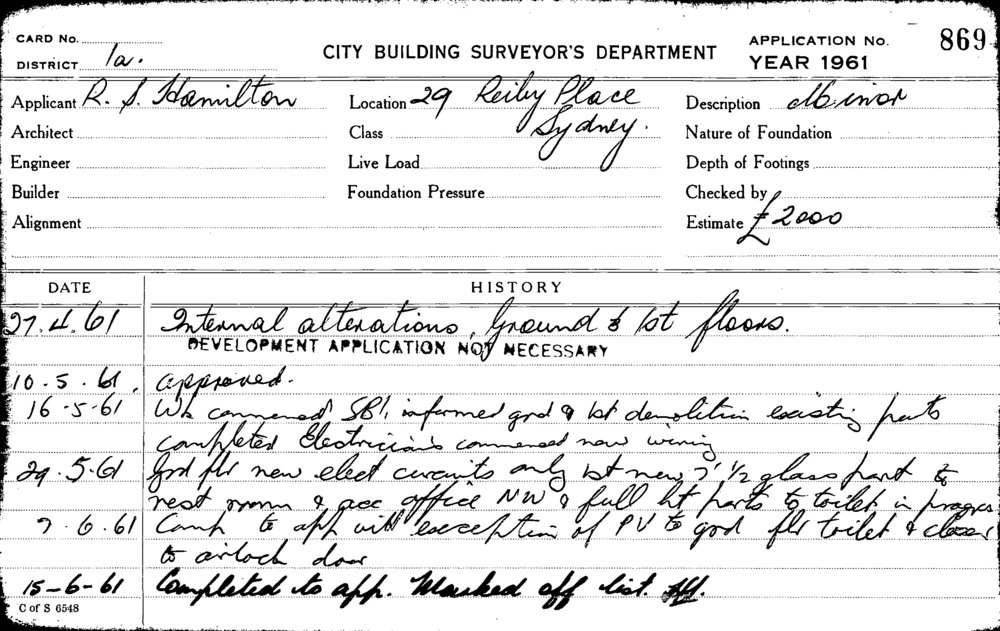 CARD No.
DISTRICT 1a.
CITY BUILDING SURVEYOR'S DEPARTMENT
APPLICATION No. 869
YEAR 1961
Applicant R. S. Hamilton
Location 29 Reiby Place
Sydney.
Description Minor
Architect
Class
Nature of Foundation
Engineer
Live Load
Depth of Footings
Builder
Foundation Pressure
Checked by
Alignment
Estimate £2000
DATE HISTORY
27.4.61 Internal alterations, Ground & 1st floors.
DEVELOPMENT APPLICATION NOT NECESSARY
10.5.61. approved.
16-5-61 Wk commenced informed grd & 1st demolition existing parts
completed Electricians commenced new wiring
29.5.61 Grd flr new elect circuits only 1st new 7' 1/2 glass part to
rest room & acc office NW & full ht parts to toilet in progress
9.6.61 Comp to app with exception of PV to grd flr toilet & closer
to airlock door
15-6-61 Completed to app. Marked off list.
C of S 6548